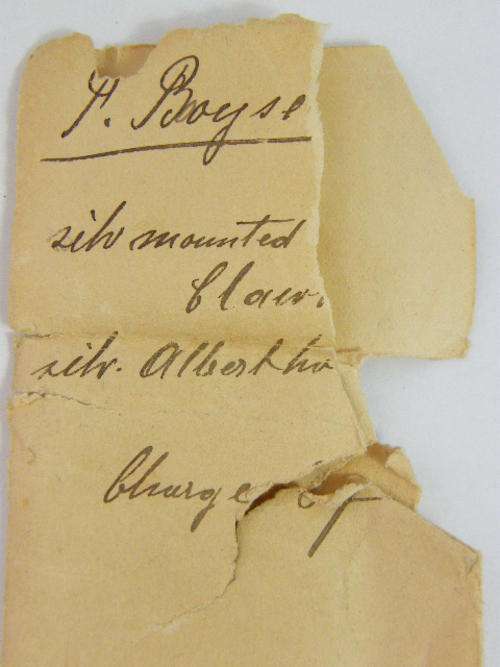 H. Boyse
silv mounted
Claw.
silv. Albert
Charge